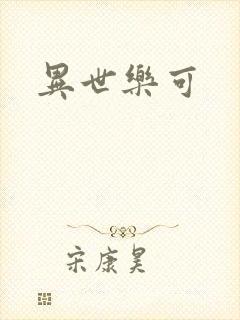 異世樂可
宋康昊